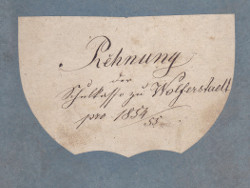 Rechnung
der
Schulkasse zu Wolferstedt
pro 1854/55